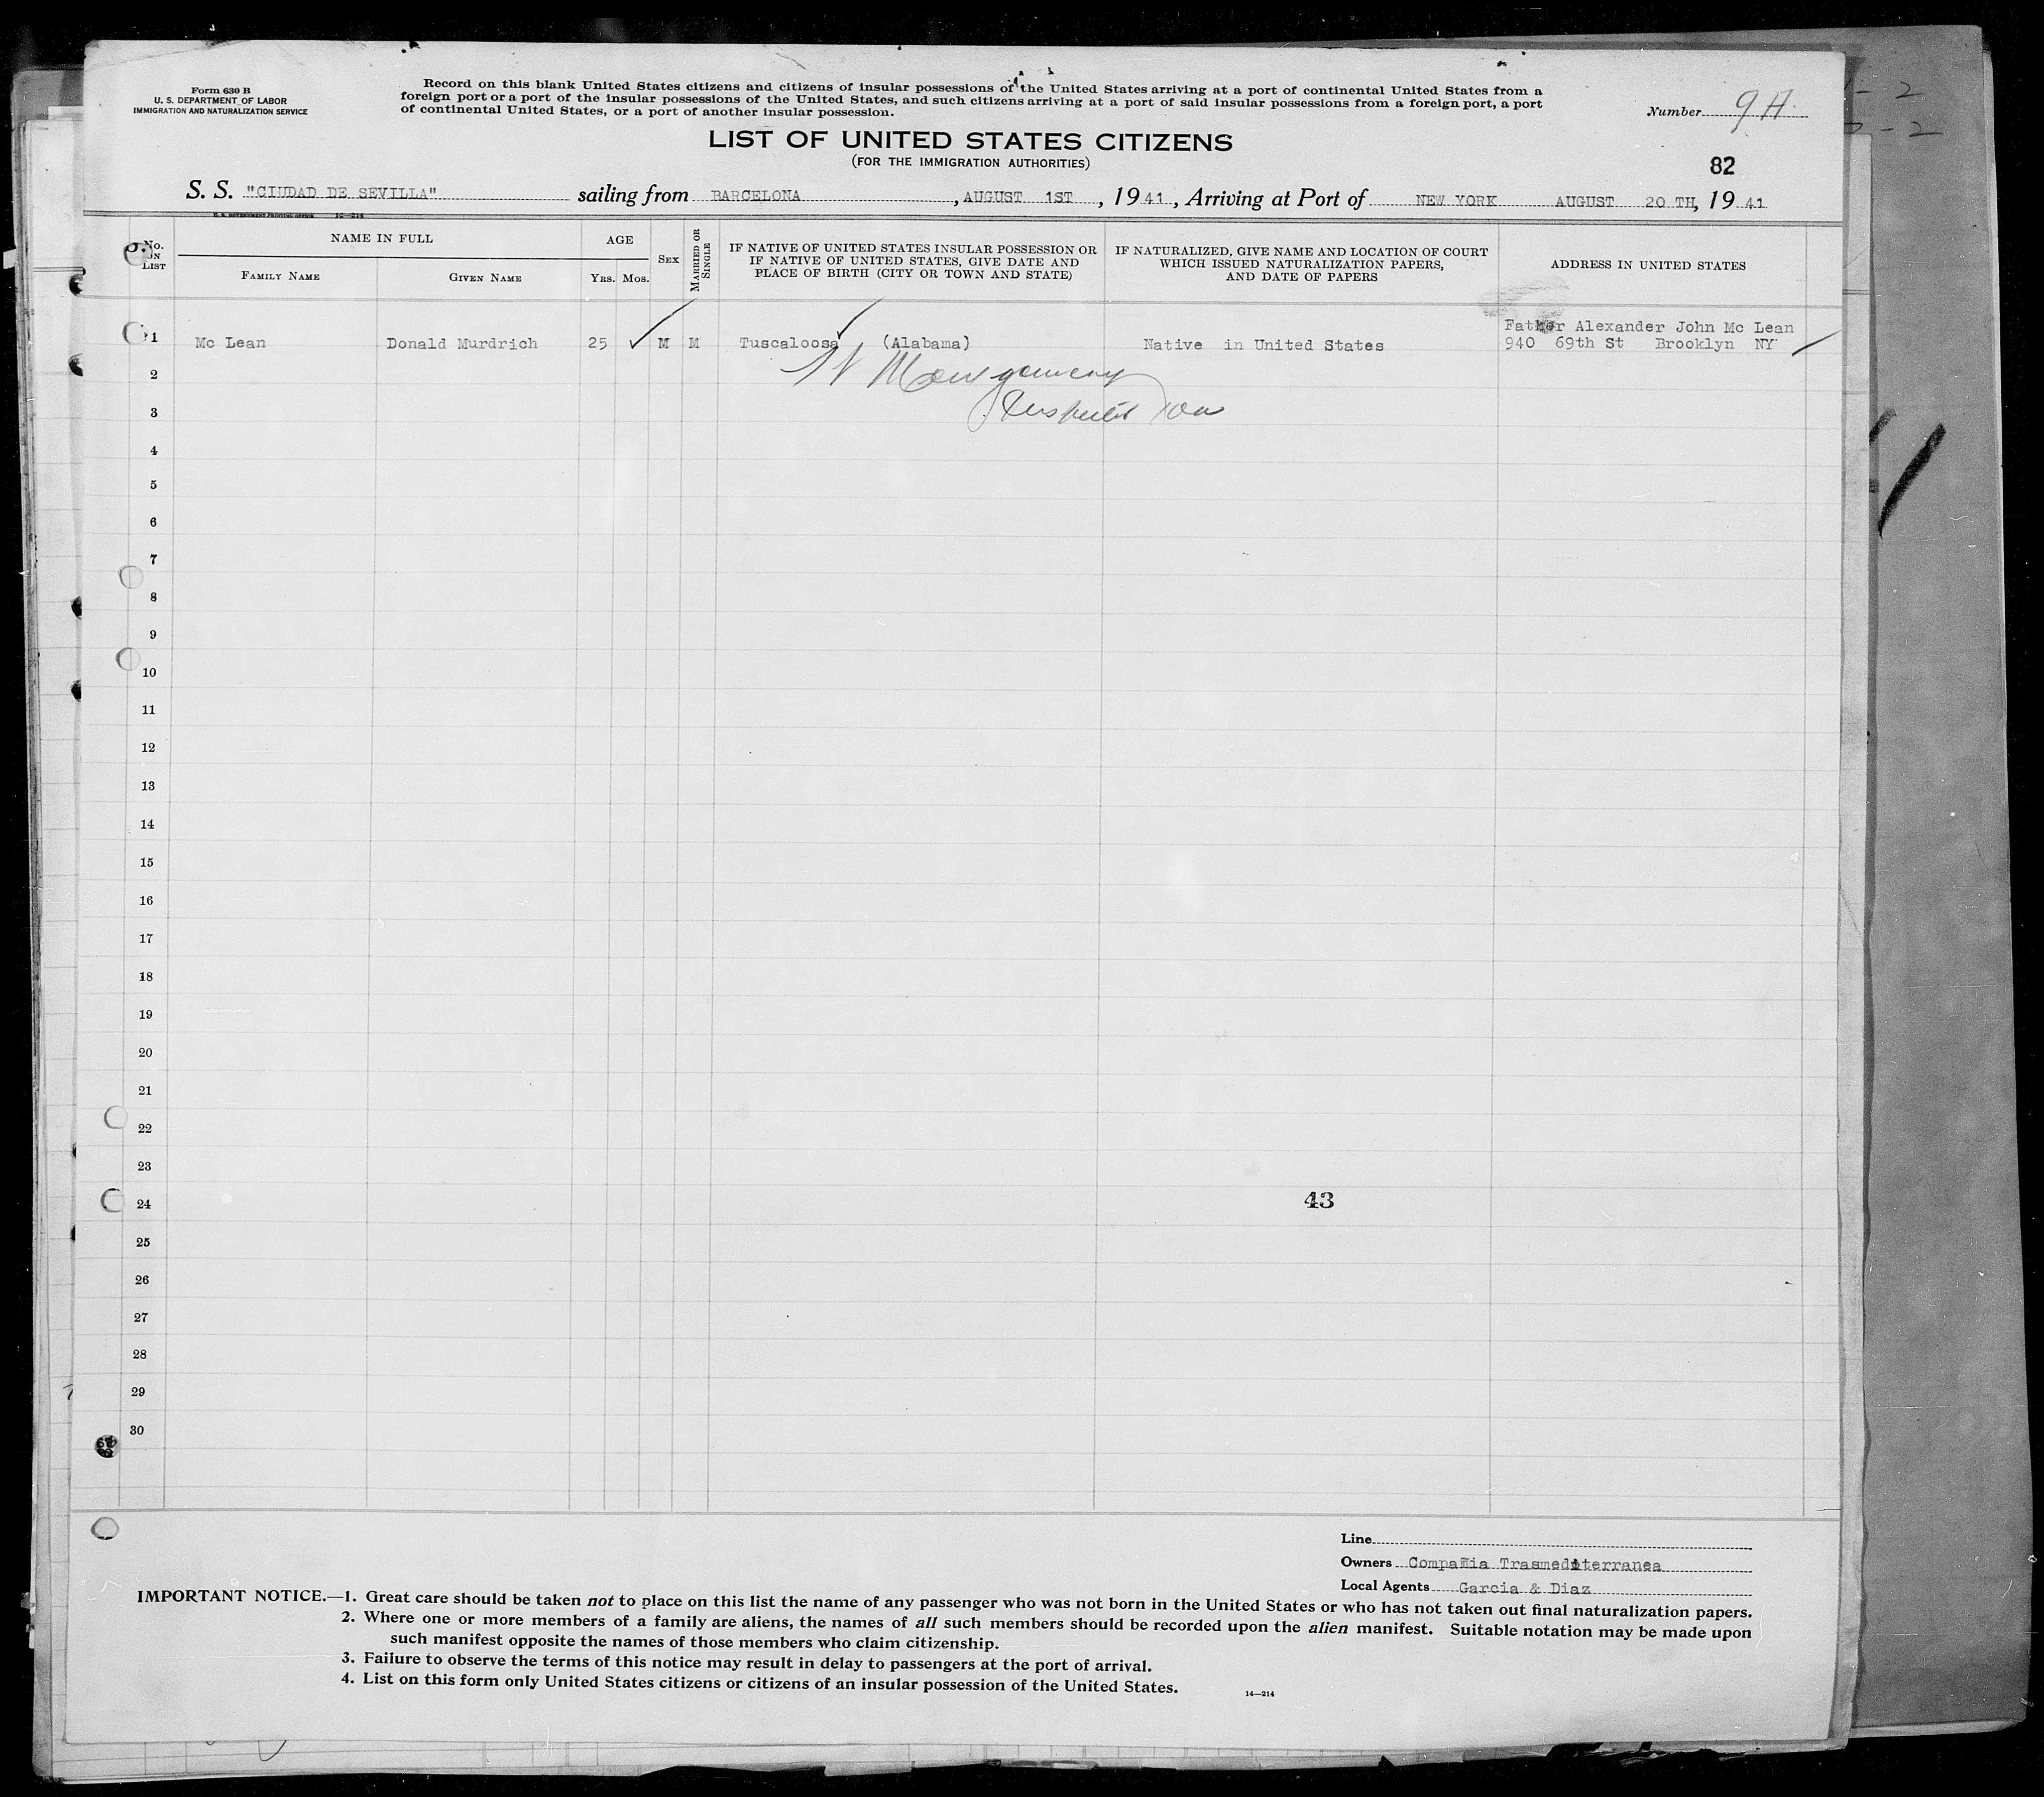 Form 630 B
U. S. DEPARTMENT OF LABOR
IMMIGRATION AND NATURALIZATION SERVICE
Record on this blank United States citizens and citizens of insular possessions of the United States arriving at a port of continental United States from a
foreign port or a port of the insular possessions of the United States, and such citizens arriving at a port of said insular possessions from a foreign port, a port
of continental United States, or a port of another insular possession.
Number 9A
LIST OF UNITED STATES CITIZENS
(FOR THE IMMIGRATION AUTHORITIES)
82
S. S. "CIUDAD DE SEVILLA" sailing from BARCELONA, AUGUST 1ST, 1941, Arriving at Port of NEW YORK AUGUST 20 TH, 1941
U. S. GOVERNMENT PRINTING OFFICE 14—214
No. ON LIST
NAME IN FULL
FAMILY NAME
GIVEN NAME
AGE
YRS. MOS.
SEX
MARRIED OR SINGLE
IF NATIVE OF UNITED STATES INSULAR POSSESSION OR
IF NATIVE OF UNITED STATES, GIVE DATE AND
PLACE OF BIRTH (CITY OR TOWN AND STATE)
IF NATURALIZED, GIVE NAME AND LOCATION OF COURT
WHICH ISSUED NATURALIZATION PAPERS,
AND DATE OF PAPERS
ADDRESS IN UNITED STATES
Father Alexander John Mc Lean
1 Mc Lean Donald Murdrich 25 M M Tuscaloosa (Alabama) Native in United States 940 69th St Brooklyn NY
Montgomery
2
3
4
5
6
7
8
9
10
11
12
13
14
15
16
17
18
19
20
21
22
23
24
43
25
26
27
28
29
30
Line
Owners Compañia Trasmediterranea
Local Agents Garcia & Diaz
IMPORTANT NOTICE.—1. Great care should be taken not to place on this list the name of any passenger who was not born in the United States or who has not taken out final naturalization papers.
2. Where one or more members of a family are aliens, the names of all such members should be recorded upon the alien manifest. Suitable notation may be made upon
such manifest opposite the names of those members who claim citizenship.
3. Failure to observe the terms of this notice may result in delay to passengers at the port of arrival.
4. List on this form only United States citizens or citizens of an insular possession of the United States.
14—214